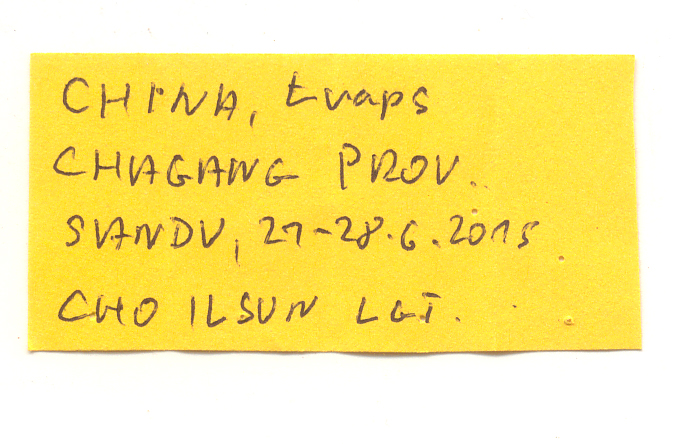 CHINA, traps
CHAGANG PROV.
SVANDV, 27-28.6.2015
CHO ILSUN LGT.